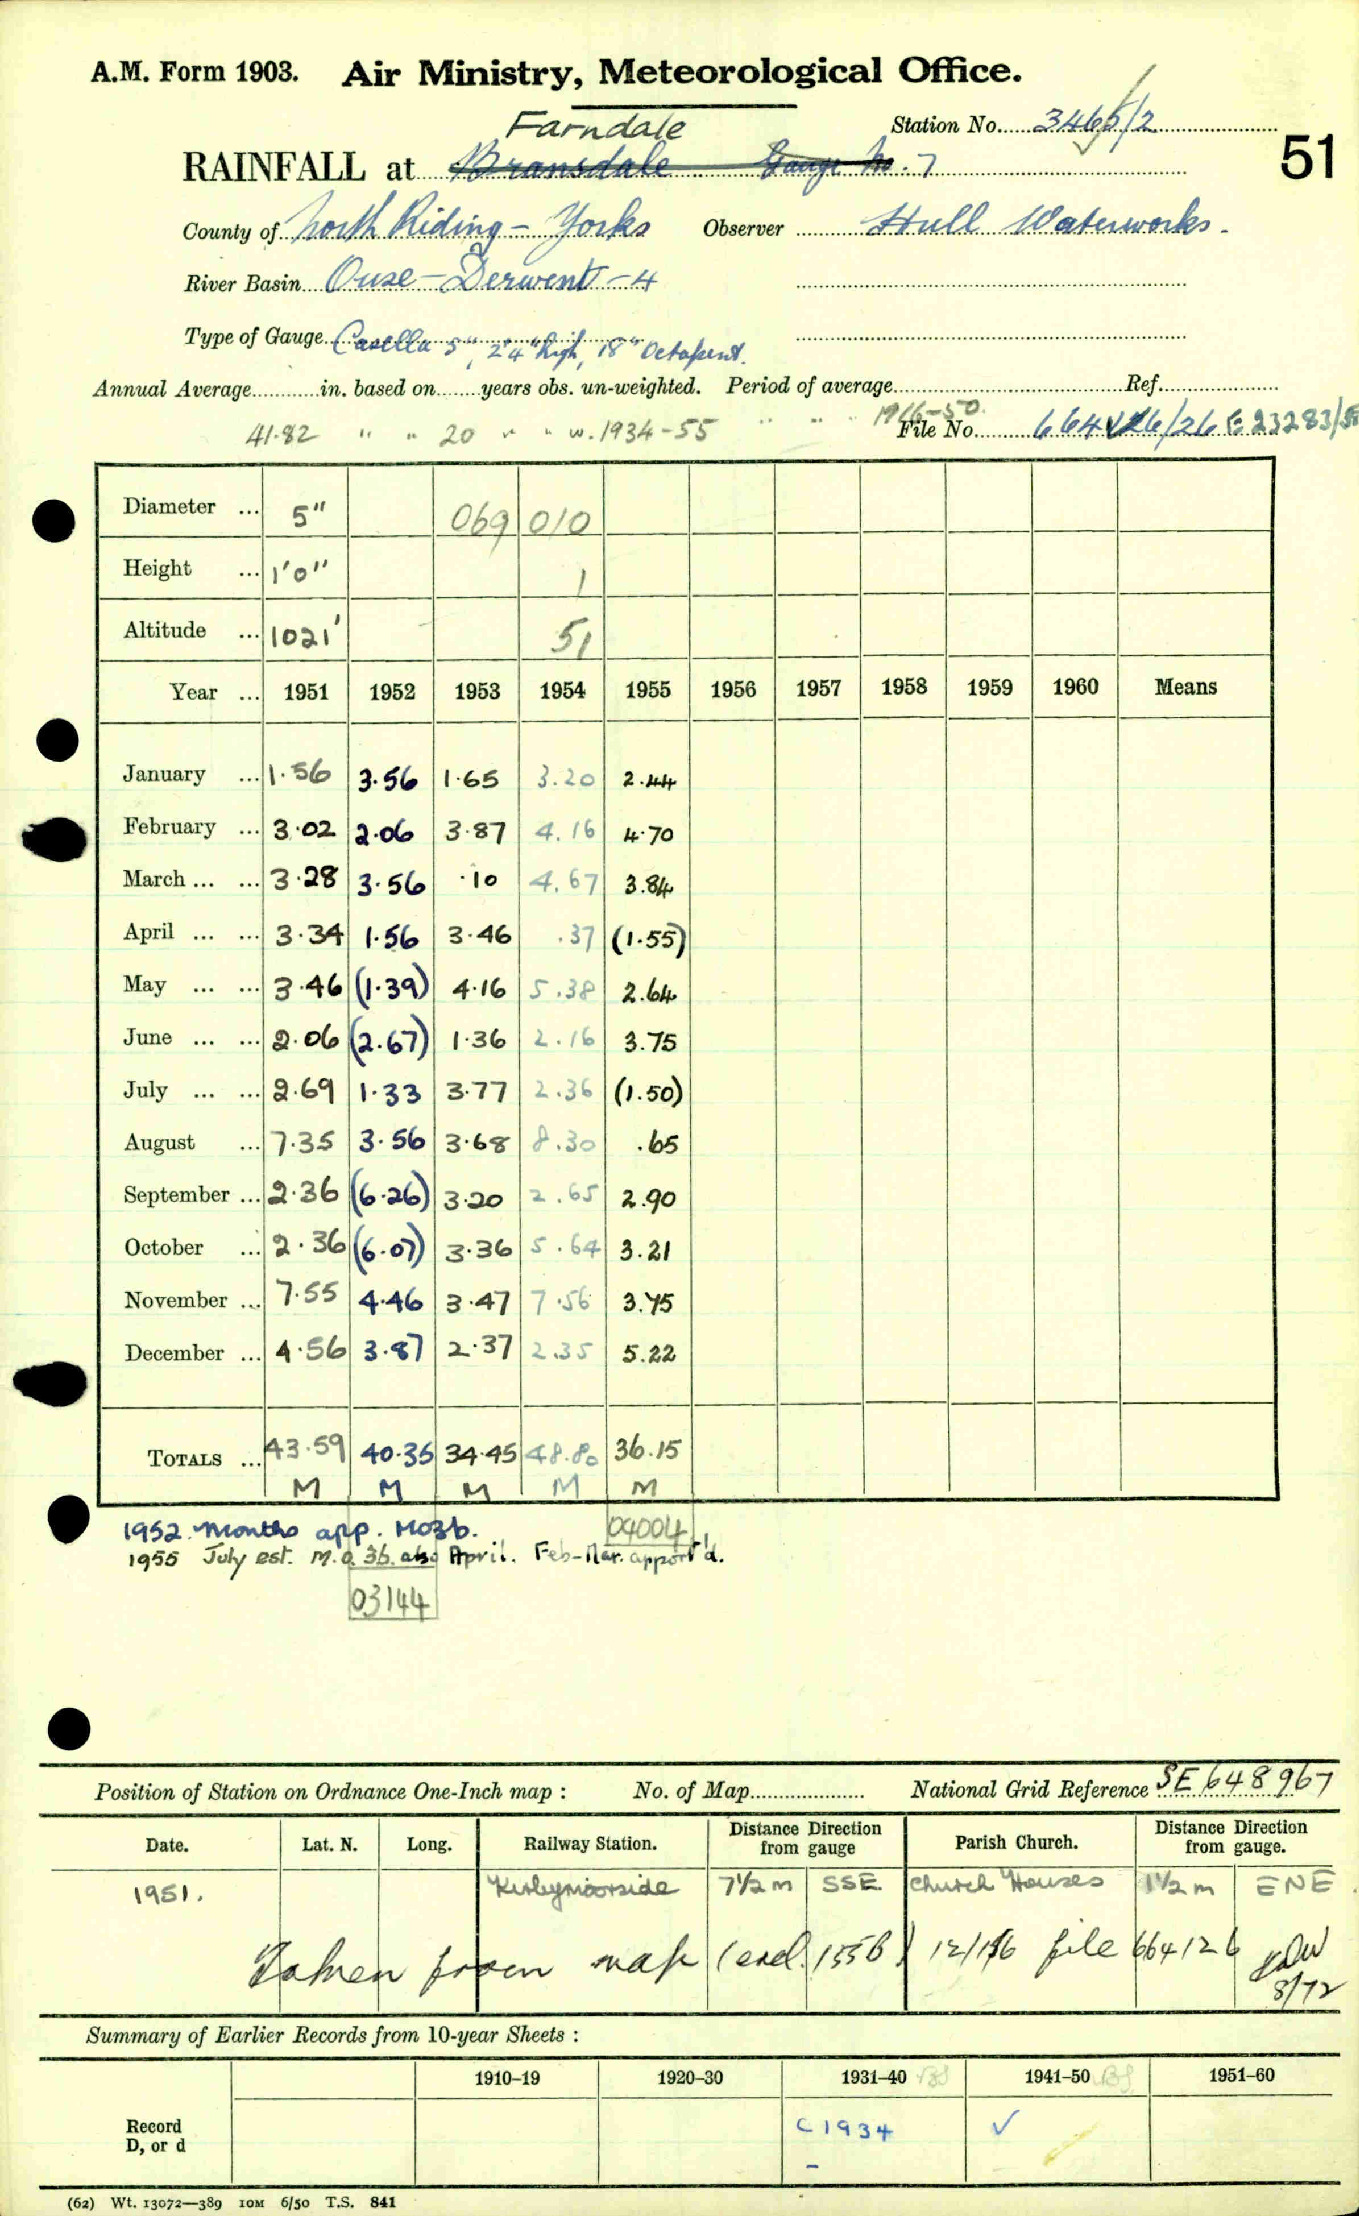 A.M. Form 1903. Air Ministry, Meteorological Office.
Farndale Station No. 3465/2
RAINFALL at Bransdale Gauge No. 7 51
County of North Riding - Yorks Observer Hull Waterworks.
River Basin Ouse - Derwent - 4
Type of Gauge Casella 5", 2'4" high, 18" Octapent.
Annual Average in. based on years obs. un-weighted. Period of average Ref.
41.82 " " 20 " " w. 1934-55 " " " 1916-50.
File No. 66426/26 E 23283/5
Diameter ... 5" 069 010
Height ... 1'0" 1
Altitude ... 1021' 51
Year ... 1951 1952 1953 1954 1955 1956 1957 1958 1959 1960 Means
January ... 1.56 3.56 1.65 3.20 2.44
February ... 3.02 2.06 3.87 4.16 4.70
March ... ... 3.28 3.56 .10 4.67 3.84
April ... ... 3.34 1.56 3.46 .37 (1.55)
May ... ... 3.46 (1.39) 4.16 5.38 2.64
June ... ... 2.06 (2.67) 1.36 2.16 3.75
July ... ... 2.69 1.33 3.77 2.36 (1.50)
August ... 7.35 3.56 3.68 8.30 .65
September ... 2.36 (6.26) 3.20 2.65 2.90
October ... 2.36 (6.07) 3.36 5.64 3.21
November ... 7.55 4.46 3.47 7.56 3.75
December ... 4.56 3.87 2.37 2.35 5.22
TOTALS ... 43.59 40.35 34.45 48.80 36.15
M M M M M
1952 Months app. M03b. 04004
1955 July est. M.O. 3b. also April. Feb-Mar. apport'd.
03144
Position of Station on Ordnance One-Inch map : No. of Map National Grid Reference SE 648967
Date. Lat. N. Long. Railway Station. Distance Direction from gauge Parish Church. Distance Direction from gauge.
1951. Kirbymoorside 7½ m SSE Church Houses 1½ m ENE
Taken from map (encl. 155B) file 664126
8/72
Summary of Earlier Records from 10-year Sheets :
1910–19 1920–30 1931–40 1941–50 1951–60
Record
D, or d
C 1934 ✓
–
(62) Wt. 13072—389 10M 6/50 T.S. 841